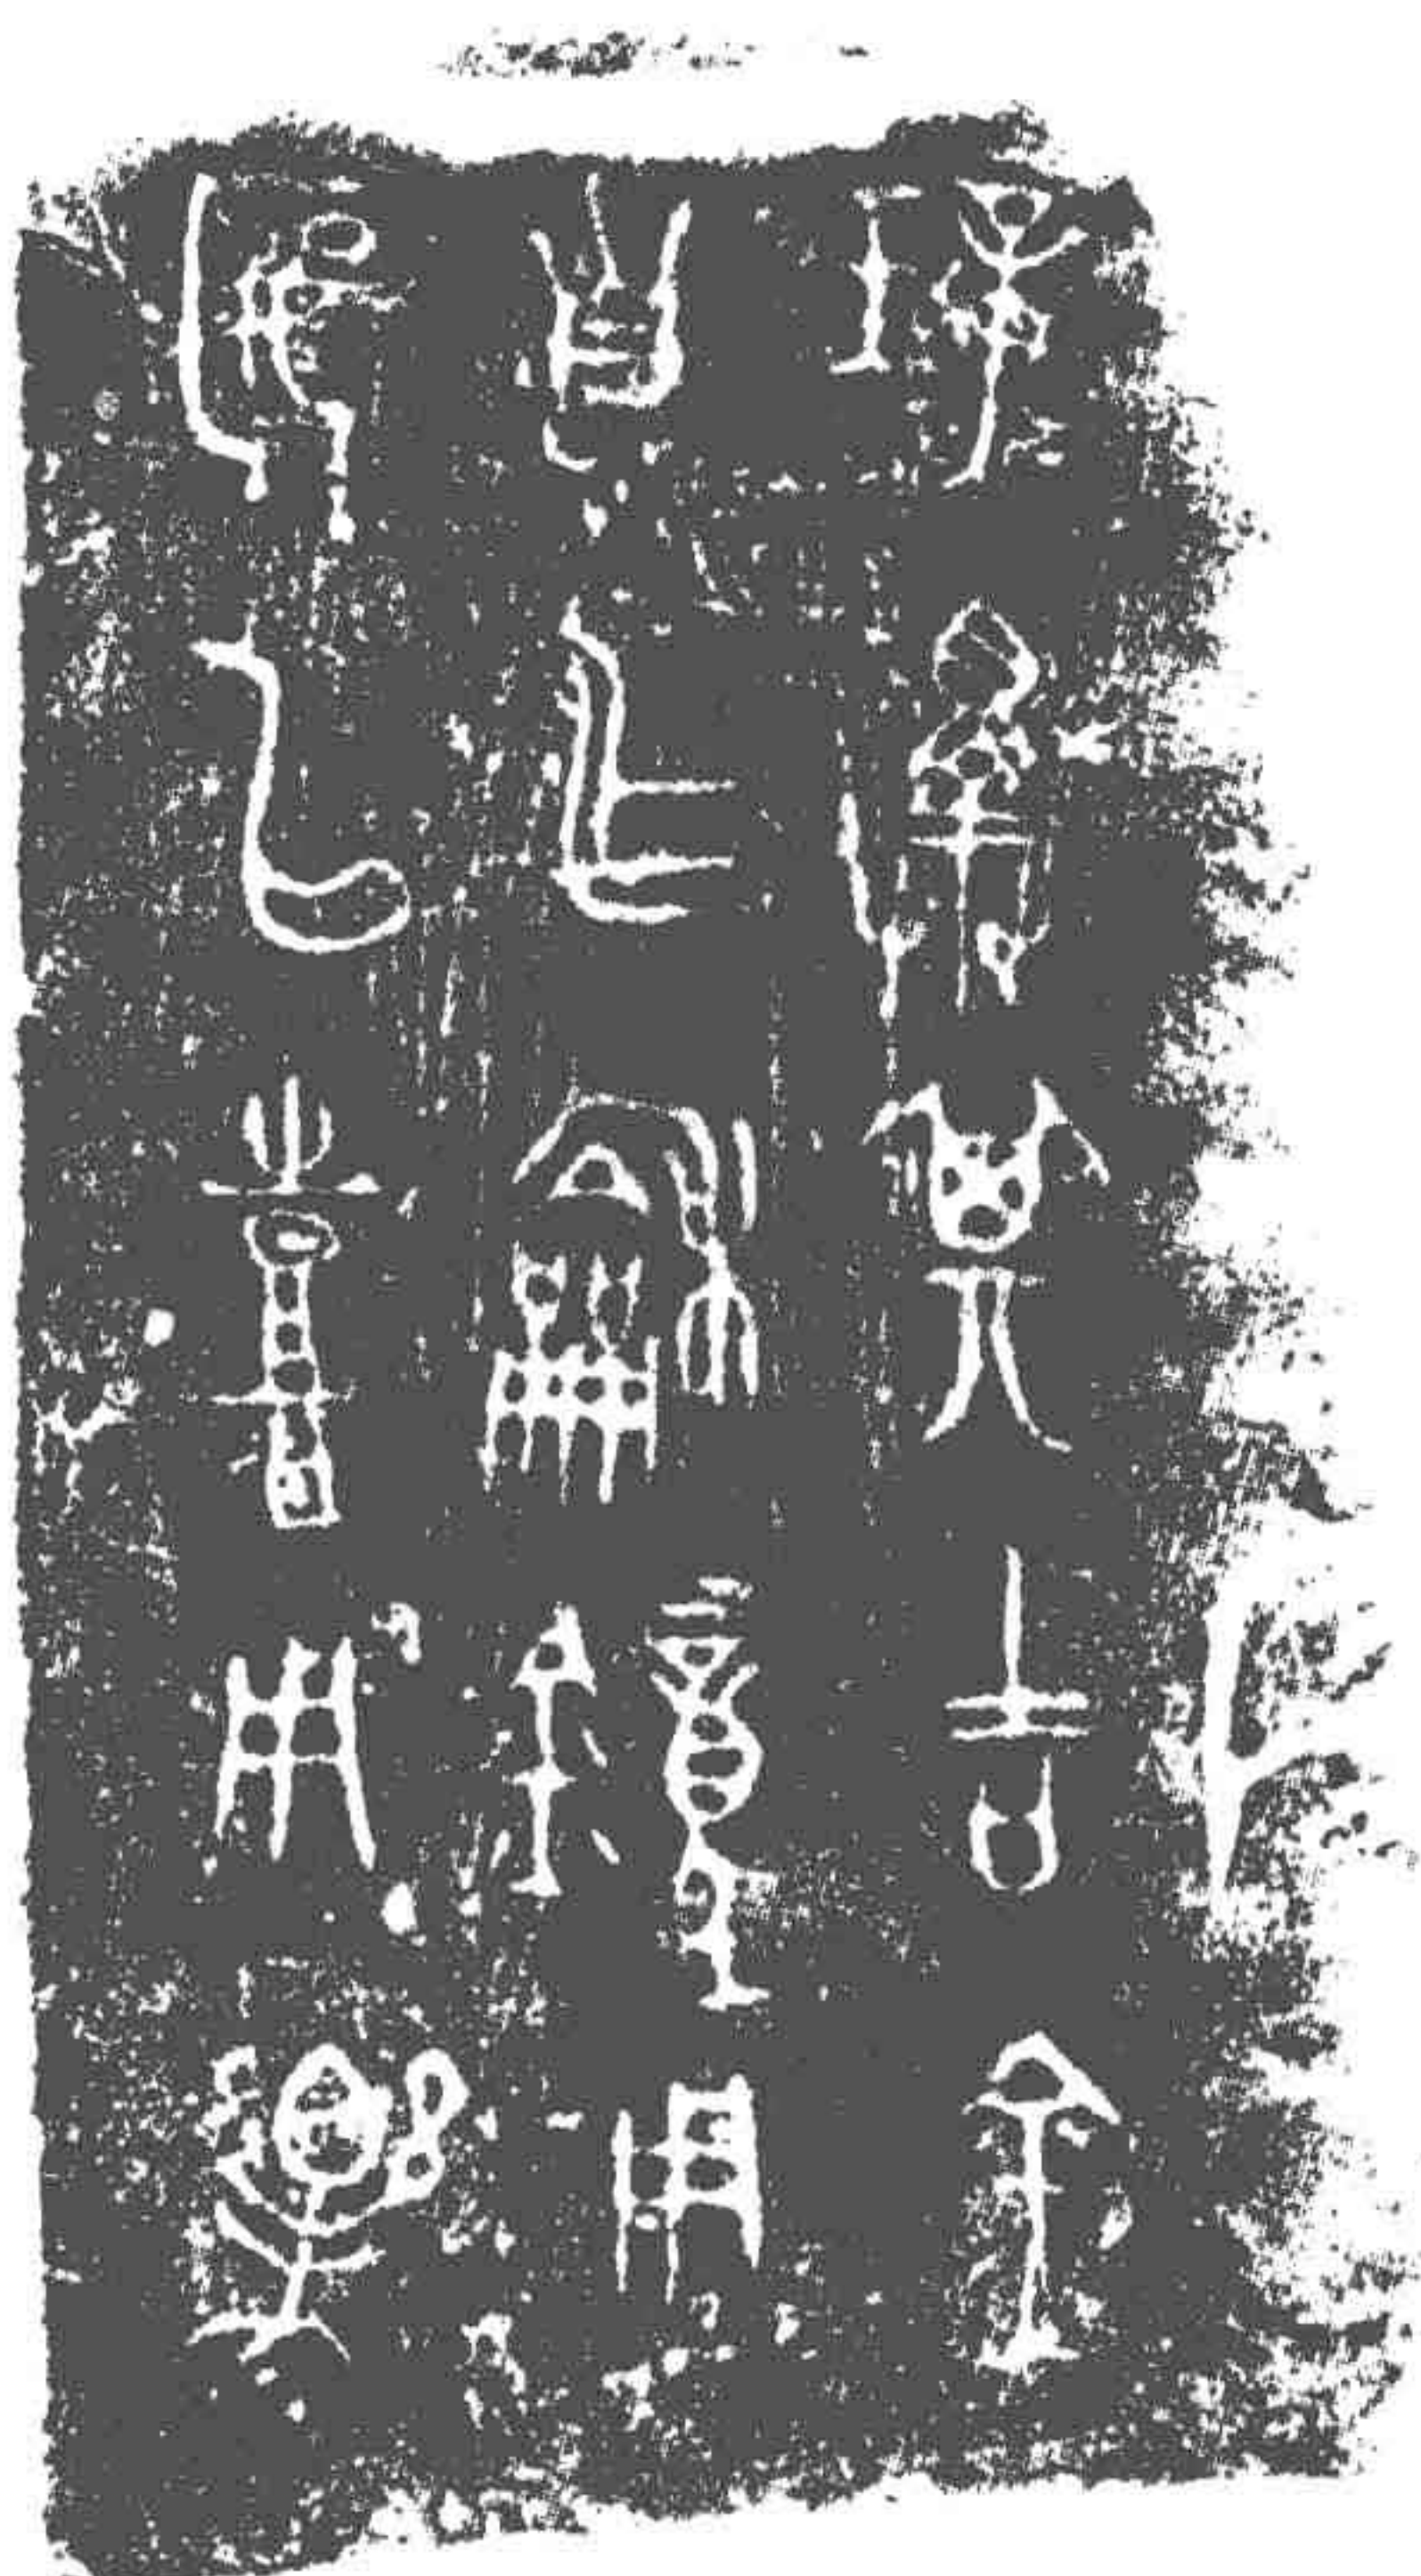 璋擇其吉金
自乍龢鐘用
匽以喜用樂